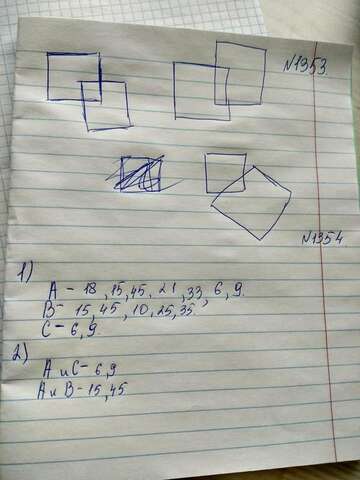 №1353.
№1354
1)
A - 18, 15, 45, 21, 33, 6, 9.
B- 15, 45, 10, 25, 35.
C- 6, 9.
2)
A и C- 6, 9
A и B- 15, 45